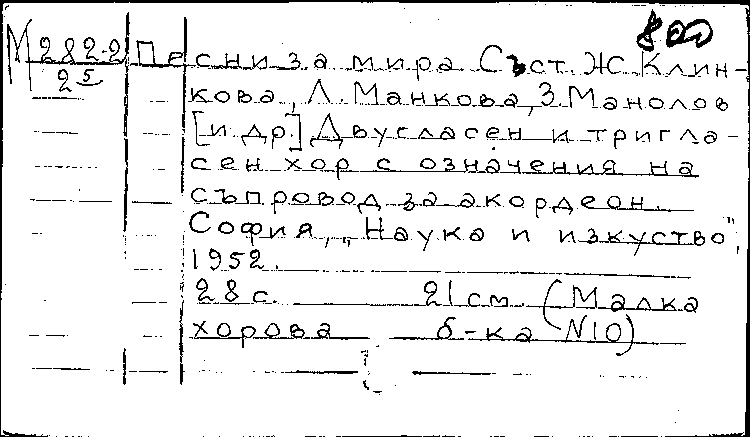 800
М 282-2 Песни за мира. Съст. Ж. Клин-
25 кова, Л. Манкова, З. Манолов
[и др.] Двугласен и тригла-
сен хор с означения на
съпровод за акордеон.
София, „Наука и изкуство",
1952.
28 с. 21 см. (Малка
хорова б-ка N10)